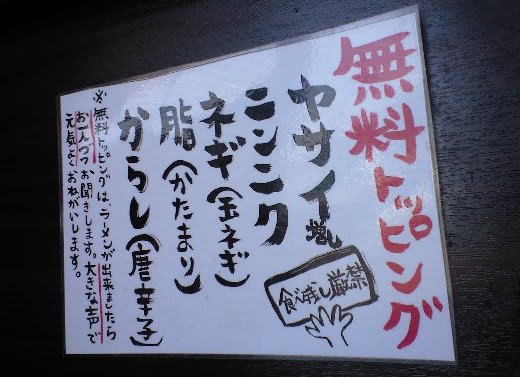 無料トッピング
ヤサイ増
ニンニク
ネギ(玉ネギ)
脂(かたまり)
からし(唐辛子)
食べ残し厳禁
※無料トッピングは、ラーメンが出来ましたら
お一人づつお聞きします。大きな声で
元気よくおねがいします。